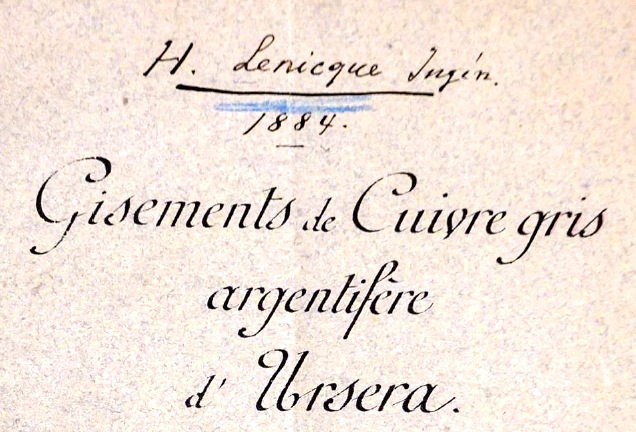 H. Lenicque Ingén.
1884.
Gisements de Cuivre gris
argentifère
d' Ursera.